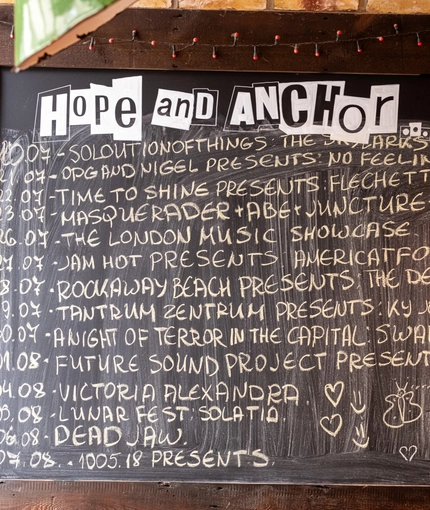 HOPE AND ANCHOR
20.07 - SOLOUTIONOFTHINGS: THE SKYLARKS
.07 - OPG AND NIGEL PRESENTS: NO FEELIN
22.07 - TIME TO SHINE PRESENTS: FLECHETT
23.07 - MASQUERADER + ABE + JUNCTURE
26.07 - THE LONDON MUSIC SHOWCASE
27.07 - JAM HOT PRESENTS: AMERICATFO
28.07 - ROCKAWAY BEACH PRESENTS: THE DE
29.07 - TANTRUM ZENTRUM PRESENTS: KY
30.07 - A NIGHT OF TERROR IN THE CAPITAL: SWA
01.08 - FUTURE SOUND PROJECT PRESENT
04.08 - VICTORIA ALEXANDRA.
05.08 - LUNAR FEST: SOLATIA.
06.08 - DEAD JAW.
07.08. - 1005.18 PRESENTS.